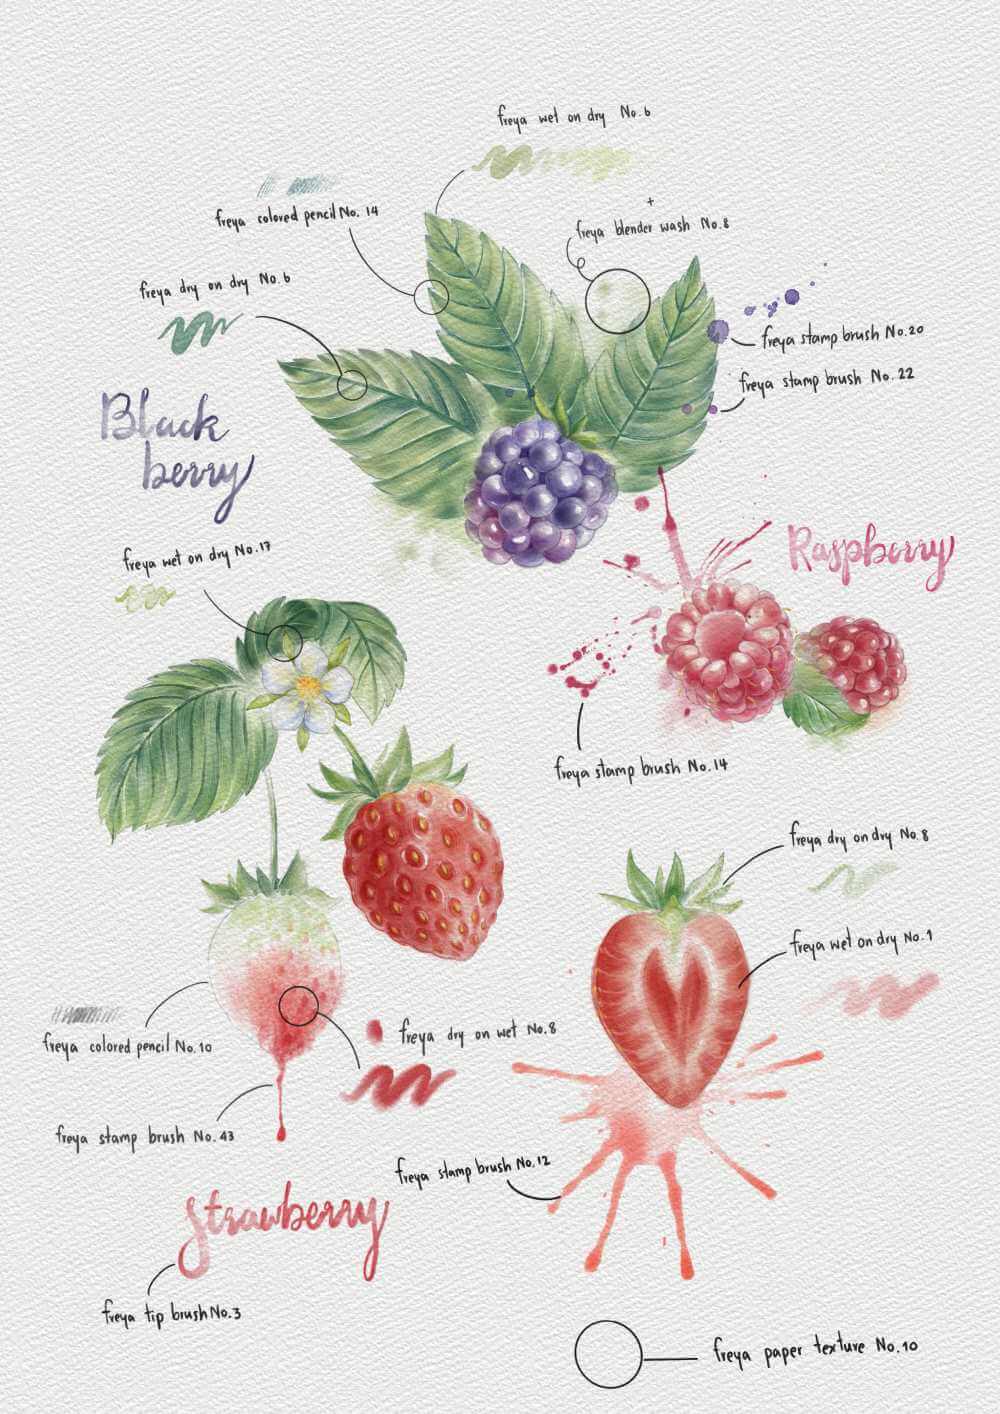 freya wet on dry No.6
freya colored pencil No. 14
+
freya blender wash No.8
freya dry on dry No.6
freya stamp brush No.20
freya stamp brush No. 22
Black
berry
freya wet on dry No.17
Raspberry
freya stamp brush No.14
freya dry on dry No.8
freya wet on dry No.1
freya colored pencil No.10
freya dry on wet No.8
freya stamp brush No.43
freya stamp brush No.12
Strawberry
freya tip brush No.3
freya paper texture No.10